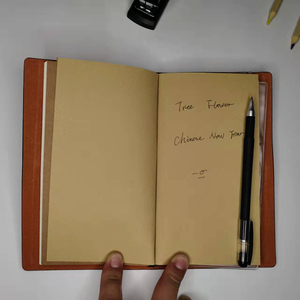 Tree Flower
Chinese New Year